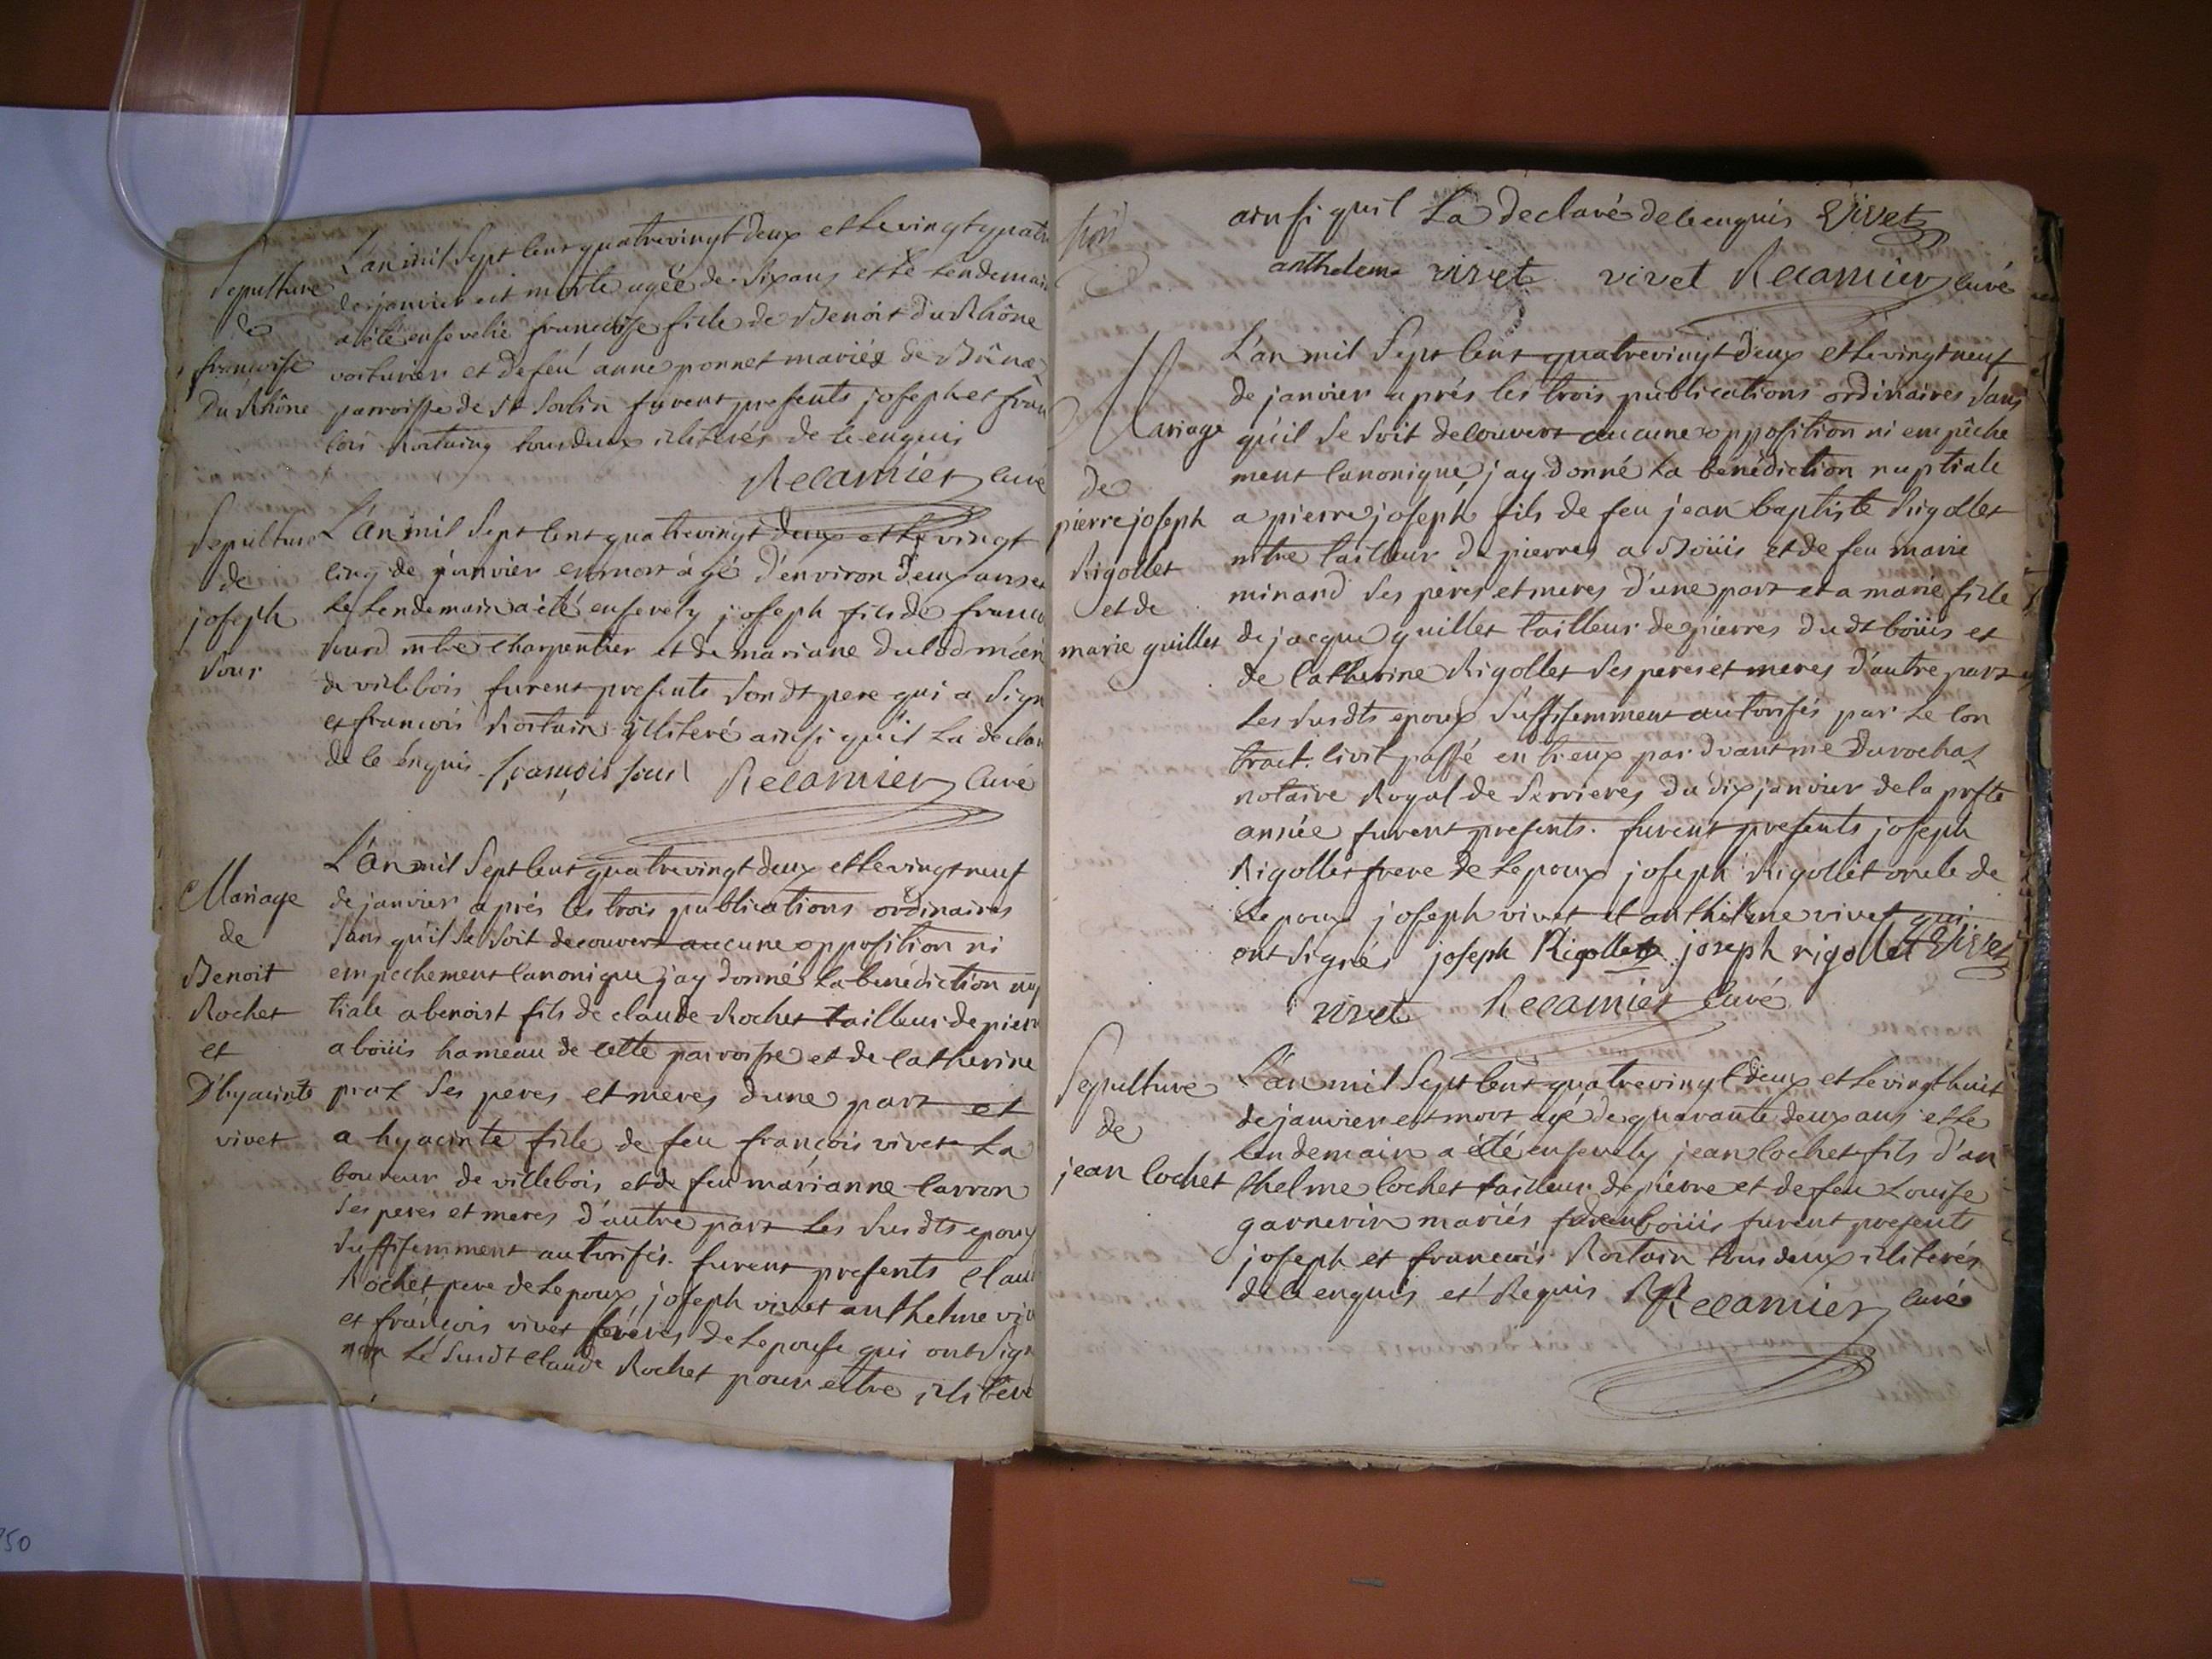 Sepulture
de
francoise
Du Rhône
L'an mil Sept Cent quatrevingt deux et le vingt quatre
de janvier est morte agée de Six ans et le lendemain
a été ensevelie francoise fille de Benoit Du Rhône
voiturier et de feu anne ponnet mariés de
parroisse de St Sorlin furent presents joseph et fran
cois Rostaing tous deux illiterés de ce enquis
Recamier Curé
Sepulture
de
joseph
Sour
L'an mil Sept Cent quatrevingt deux et le vingt
cinq de janvier est mort agé d'environ deux ans et
le lendemain a été ensevely joseph fils de franco
Sourd mtre Charpentier et de mariane
de villebois furent presents Son dt pere qui a Signé
et francois Rostain illiteré ainsi qu'il La declaré
de ce enquis françois sour Recamier Curé
Mariage
de
Benoit
Rochet
et
D'hyacinte
vivet
L'an mil Sept Cent quatrevingt deux et le vingt neuf
de janvier aprés les trois publications ordinaires
Sans qu'il Se Soit decouvert aucune opposition ni
empechement Canonique j'ay donné La bénédiction nup
tiale a benoist fils de claude Rochet tailleur de pierre
a boüis hameau de cette parroisse et de Catherine
prat Ses peres et meres d'une part et
a hyacinte fille de feu françois vivet La
boureur de villebois et de feu marianne Carron
Ses peres et meres d'autre part Les Susdts epoux
Suffisemment autorisés. furent presents Clau
Rochet pere de Lepoux joseph vivet anthelme viv
et françois vivet freres de Lepouse qui ont Signé
non Le Susdt Claude Rochet pour estre illiteré
ainsi quil La declaré de ce enquis Vivet
anthelem vivet vivet Recamier Curé
Mariage
de
pierre joseph
Rigollet
et de
marie guillet
L'an mil Sept Cent quatrevingt deux et le vingt neuf
de janvier aprés les trois publications ordinaires Sans
qu'il Se Soit decouvert aucune opposition ni empêche
ment Canonique j'ay donné La bénédiction nuptiale
a pierre joseph fils de feu jean baptiste Rigollet
mtre tailleur de pierres a Boüis et de feu marie
minand Ses peres et meres d'une part et a marie fille
de jacque guillet tailleur de pierres du dt boüis et
de Catherine Rigollet Ses peres et meres d'autre part
Les Susdts epoux Suffisemment autorisés par Le Con
tract Civil passé entr'eux par dvant me Durochat
notaire Royal de Serrieres du dix janvier de la prste
année furent presents. furent presents joseph
Rigollet frere de Lepoux joseph Rigollet oncle de
Lepoux joseph vivet et anthelme vivet qui
ont Signés joseph Rigollet joseph rigollet Vivet
vivet Recamier Curé
Sepulture
de
jean Cochet
L'an mil Sept Cent quatrevingt deux et le vingt huit
de janvier est mort agé de quarante deux ans et le
lendemain a été ensevely jean Cochet fils d'an
thelme Cochet tailleur de pierre et de feu Louise
garnerin mariés boüis furent presents
joseph et francois Rostain tous deux illiterés
de ce enquis et Requis Recamier Curé
750